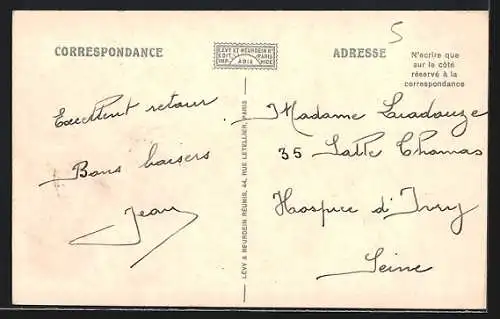 5
CORRESPONDANCE
LÉVY ET NEURDEIN Rs
EDIT. PARIS
IMP. NICE
ADRESSE
N'ecrire que
sur le côté
réservé à la
correspondance
Excellent retour
Bons baisers
Jean
LÉVY & NEURDEIN RÉUNIS, 44, RUE LETELLIER, PARIS
Madame
35 Salle Thomas
Hospice d'Ivry
Seine